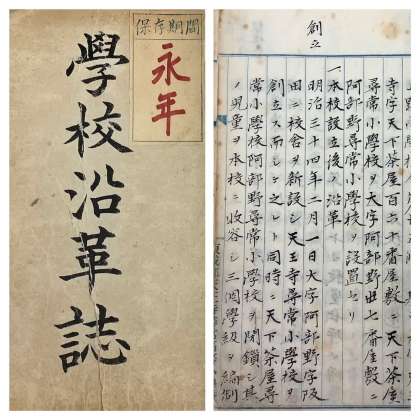 保存期間
永年
學校沿革誌
創立
寺字天下茶屋百六十番屋敷ニ天下茶屋
尋常小學校ヲ大字阿部野丗七番屋敷ニ
阿部野尋常小學校ヲ設置セリ
一本校設立後ノ沿革
明治三十四年二月一日大字阿部野字阪
田ニ校舎ヲ新設シ天王寺尋常小學校ヲ
創立ス而シテ之レト同時ニ天下茶屋尋
常小學校阿部野尋常小學校ヲ閉鎖シ其
ノ兒童ヲ本校ニ收容シ三個學級ヲ編制